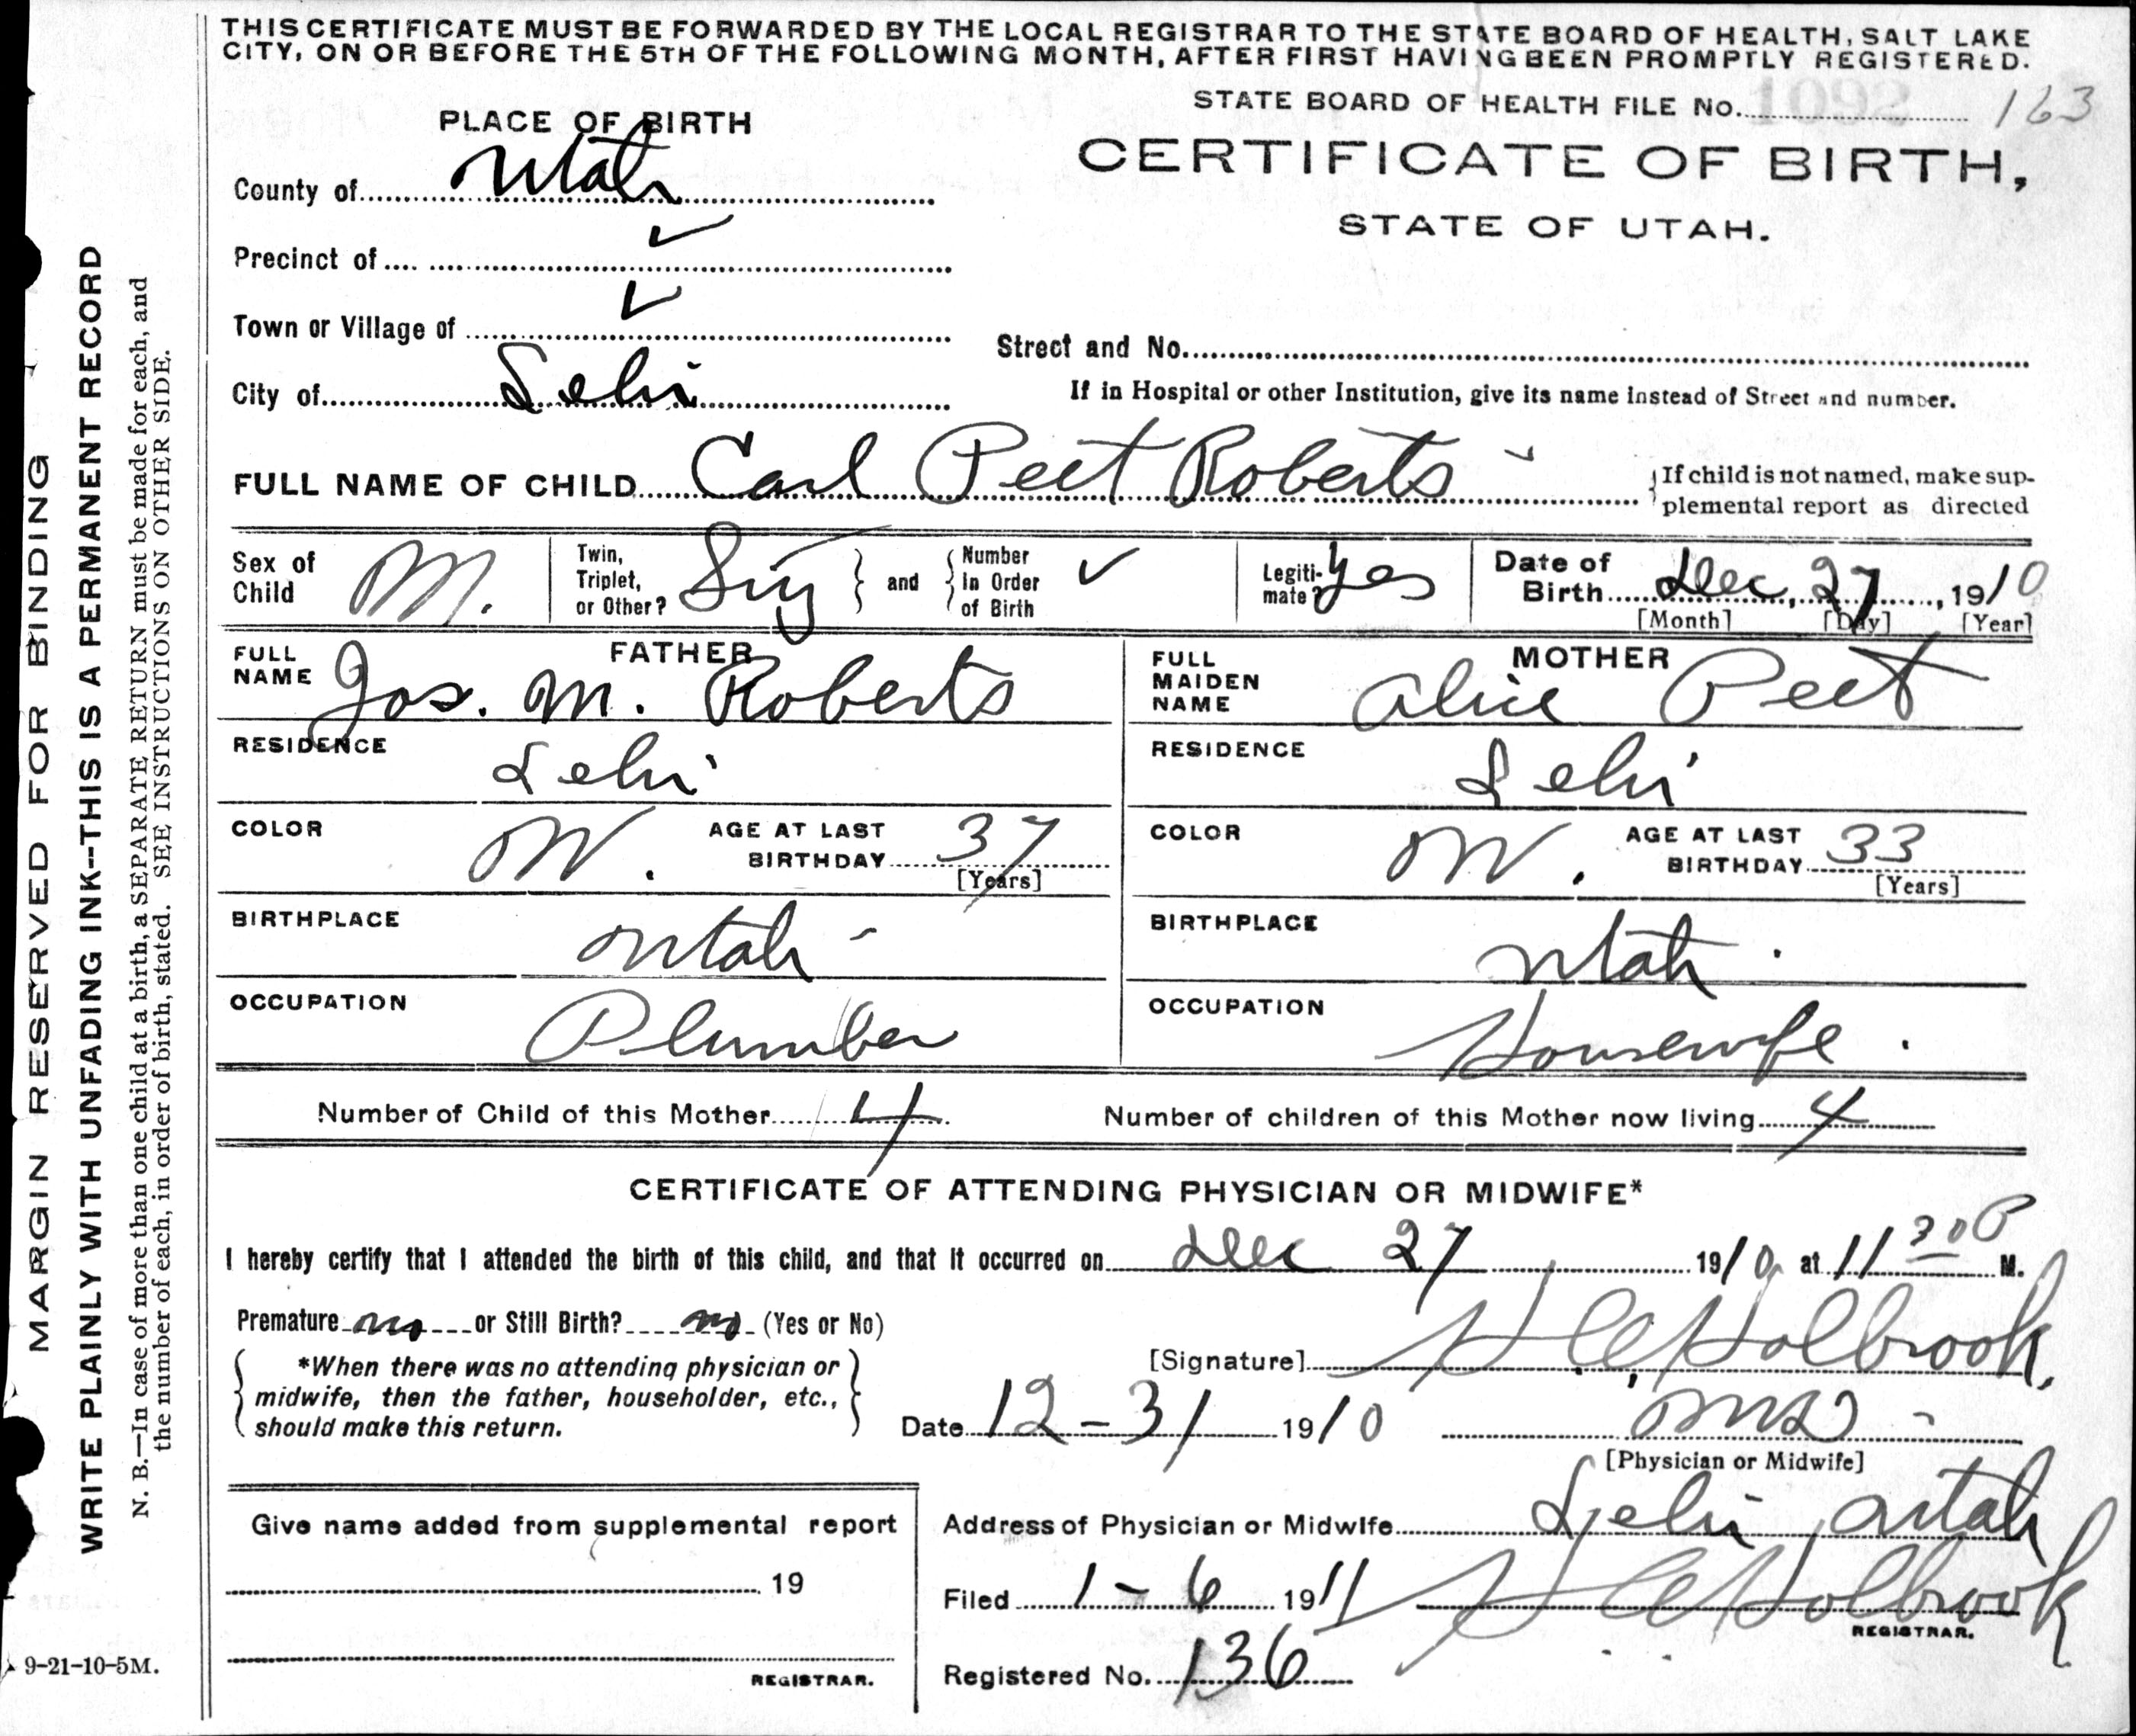 THIS CERTIFICATE MUST BE FORWARDED BY THE LOCAL REGISTRAR TO THE STATE BOARD OF HEALTH, SALT LAKE
CITY, ON OR BEFORE THE 5TH OF THE FOLLOWING MONTH, AFTER FIRST HAVING BEEN PROMPTLY REGISTERED.
STATE BOARD OF HEALTH FILE No. 163
PLACE OF BIRTH
CERTIFICATE OF BIRTH,
STATE OF UTAH.
County of Utah
Precinct of ✓
Town or Village of ✓
Street and No.
City of Lehi
If in Hospital or other Institution, give its name instead of Street and number.
FULL NAME OF CHILD Carl Peet Roberts
{If child is not named, make sup-
plemental report as directed
Sex of Child M.
Twin, Triplet, or Other? Sing } and { Number In Order of Birth ✓
Legiti-mate? Yes
Date of Birth Dec, 27, 1910
[Month] [Day] [Year]
FATHER
FULL NAME Jos. M. Roberts
RESIDENCE Lehi
COLOR W. AGE AT LAST BIRTHDAY 37 [Years]
BIRTHPLACE Utah
OCCUPATION Plumber
MOTHER
FULL MAIDEN NAME Alice Peet
RESIDENCE Lehi
COLOR W. AGE AT LAST BIRTHDAY 33 [Years]
BIRTHPLACE Utah
OCCUPATION Housewife.
Number of Child of this Mother 4 Number of children of this Mother now living 4
CERTIFICATE OF ATTENDING PHYSICIAN OR MIDWIFE*
I hereby certify that I attended the birth of this child, and that it occurred on Dec 27 1910, at 11 30 P M.
Premature no or Still Birth? no (Yes or No)
*When there was no attending physician or
midwife, then the father, householder, etc.,
should make this return.
[Signature] Holbrook,
Date 12-31 1910 MD
[Physician or Midwife]
Give name added from supplemental report
19
REGISTRAR.
Address of Physician or Midwife Lehi, Utah
Filed 1-6 1911 Holbrook
REGISTRAR.
Registered No. 136
9-21-10-5M.
MARGIN RESERVED FOR BINDING
WRITE PLAINLY WITH UNFADING INK--THIS IS A PERMANENT RECORD
N. B.—In case of more than one child at a birth, a SEPARATE RETURN must be made for each, and
the number of each, in order of birth, stated. SEE INSTRUCTIONS ON OTHER SIDE.